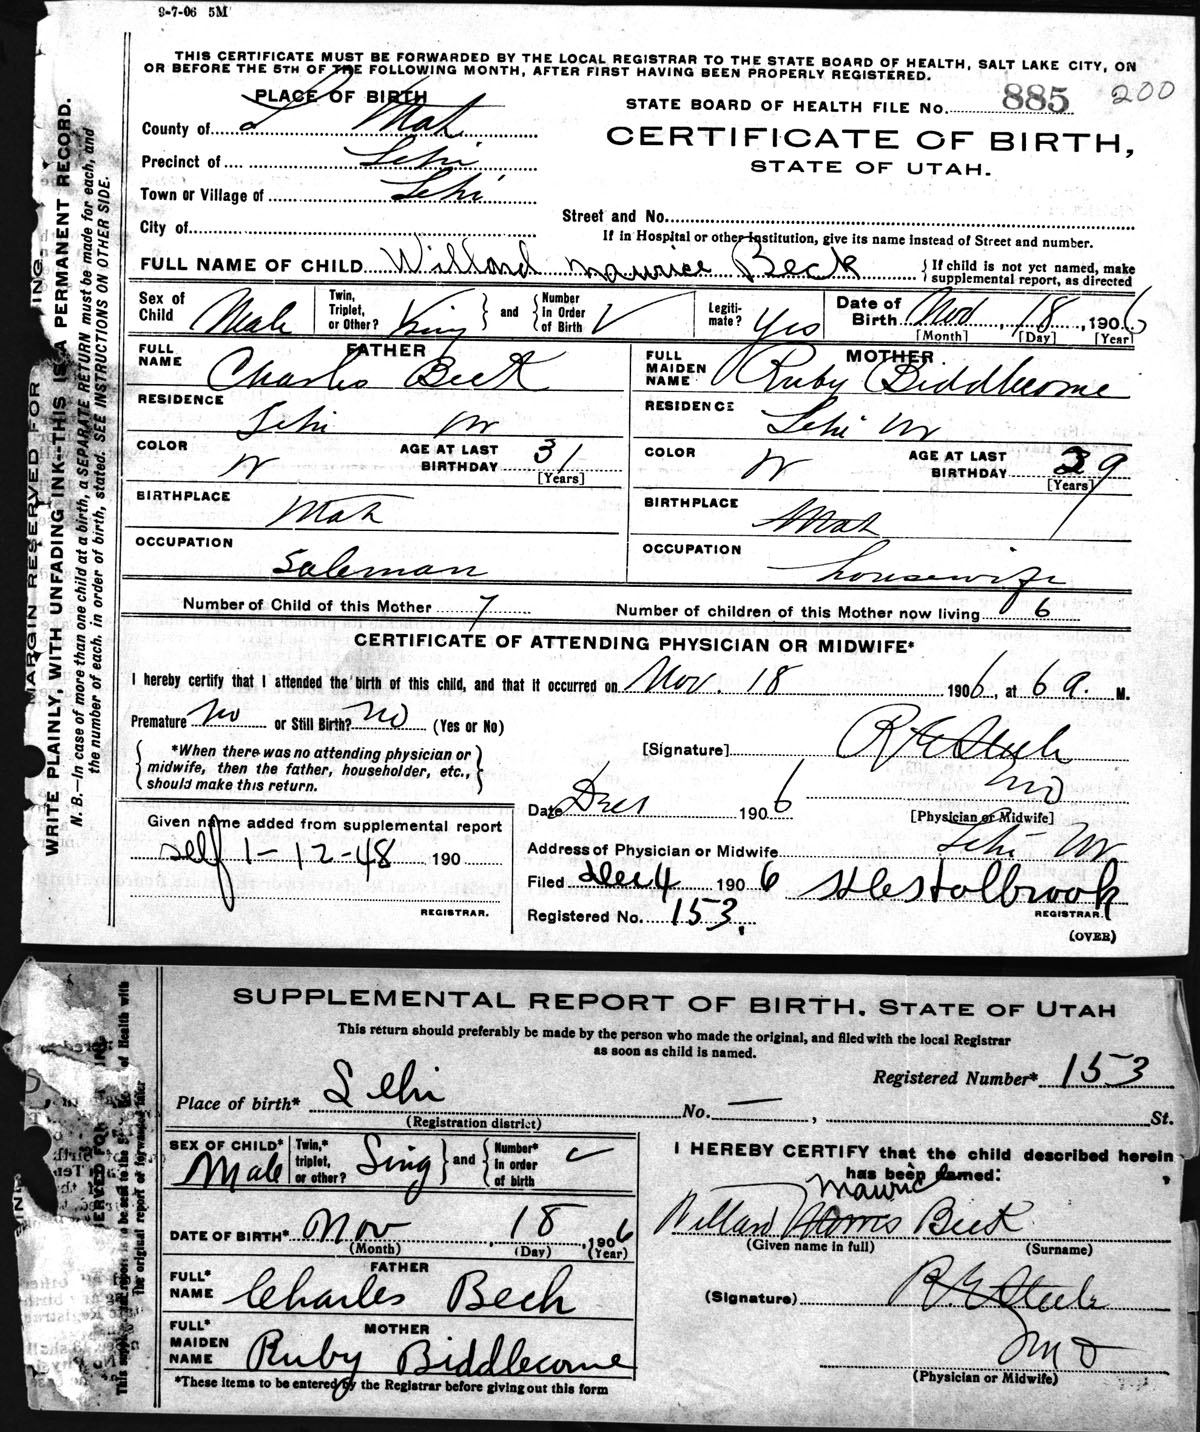 9-7-06 5M
THIS CERTIFICATE MUST BE FORWARDED BY THE LOCAL REGISTRAR TO THE STATE BOARD OF HEALTH, SALT LAKE CITY, ON
OR BEFORE THE 5TH OF THE FOLLOWING MONTH, AFTER FIRST HAVING BEEN PROPERLY REGISTERED.
PLACE OF BIRTH
STATE BOARD OF HEALTH FILE No. 885 200
County of Utah
CERTIFICATE OF BIRTH,
STATE OF UTAH.
Precinct of Lehi
Town or Village of Lehi
Street and No.
City of
If in Hospital or other Institution, give its name instead of Street and number.
FULL NAME OF CHILD Willard Maurice Beck { If child is not yet named, make
supplemental report, as directed
Sex of Child Male Twin, Triplet, or Other? and Number In Order of Birth Legiti-mate? Yes Date of Birth Nov, 18, 1906
[Month] [Day] [Year]
FATHER
FULL NAME Charles Beck
RESIDENCE Lehi
COLOR W AGE AT LAST BIRTHDAY 31
[Years]
BIRTHPLACE Utah
OCCUPATION Saleman
MOTHER
FULL MAIDEN NAME Ruby Biddlecome
RESIDENCE Lehi
COLOR W AGE AT LAST BIRTHDAY 39
[Years]
BIRTHPLACE Utah
OCCUPATION housewife
Number of Child of this Mother 7 Number of children of this Mother now living 6
CERTIFICATE OF ATTENDING PHYSICIAN OR MIDWIFE*
I hereby certify that I attended the birth of this child, and that it occurred on Nov. 18 1906, at 6 a. M.
Premature no or Still Birth? no (Yes or No)
{ *When there was no attending physician or
midwife, then the father, householder, etc.,
should make this return. }
[Signature] R E Steele
MD
[Physician or Midwife]
Date 1906
Given name added from supplemental report
self 1-12-48 190
REGISTRAR.
Address of Physician or Midwife Lehi
Filed Dec 4 1906 Holbrook
REGISTRAR.
Registered No. 153.
(OVER)
MARGIN RESERVED FOR
WRITE PLAINLY, WITH UNFADING INK--THIS IS A PERMANENT RECORD.
N. B.—In case of more than one child at a birth, a SEPARATE RETURN must be made for each, and
the number of each, in order of birth, stated. SEE INSTRUCTIONS ON OTHER SIDE.
SUPPLEMENTAL REPORT OF BIRTH. STATE OF UTAH
This return should preferably be made by the person who made the original, and filed with the local Registrar
as soon as child is named.
Registered Number* 153
Place of birth* Lehi No. — , St.
(Registration district)
SEX OF CHILD* Male Twin,* triplet, or other? Sing and Number* in order of birth
DATE OF BIRTH* Nov, 18, 1906
(Month) (Day) (Year)
FATHER
FULL* NAME Charles Beck
MOTHER
FULL* MAIDEN NAME Ruby Biddlecome
*These items to be entered by the Registrar before giving out this form
I HEREBY CERTIFY that the child described herein
has been named:
Mauric
Willard Morris Beck
(Given name in full) (Surname)
(Signature) R. E Steele
MD
(Physician or Midwife)